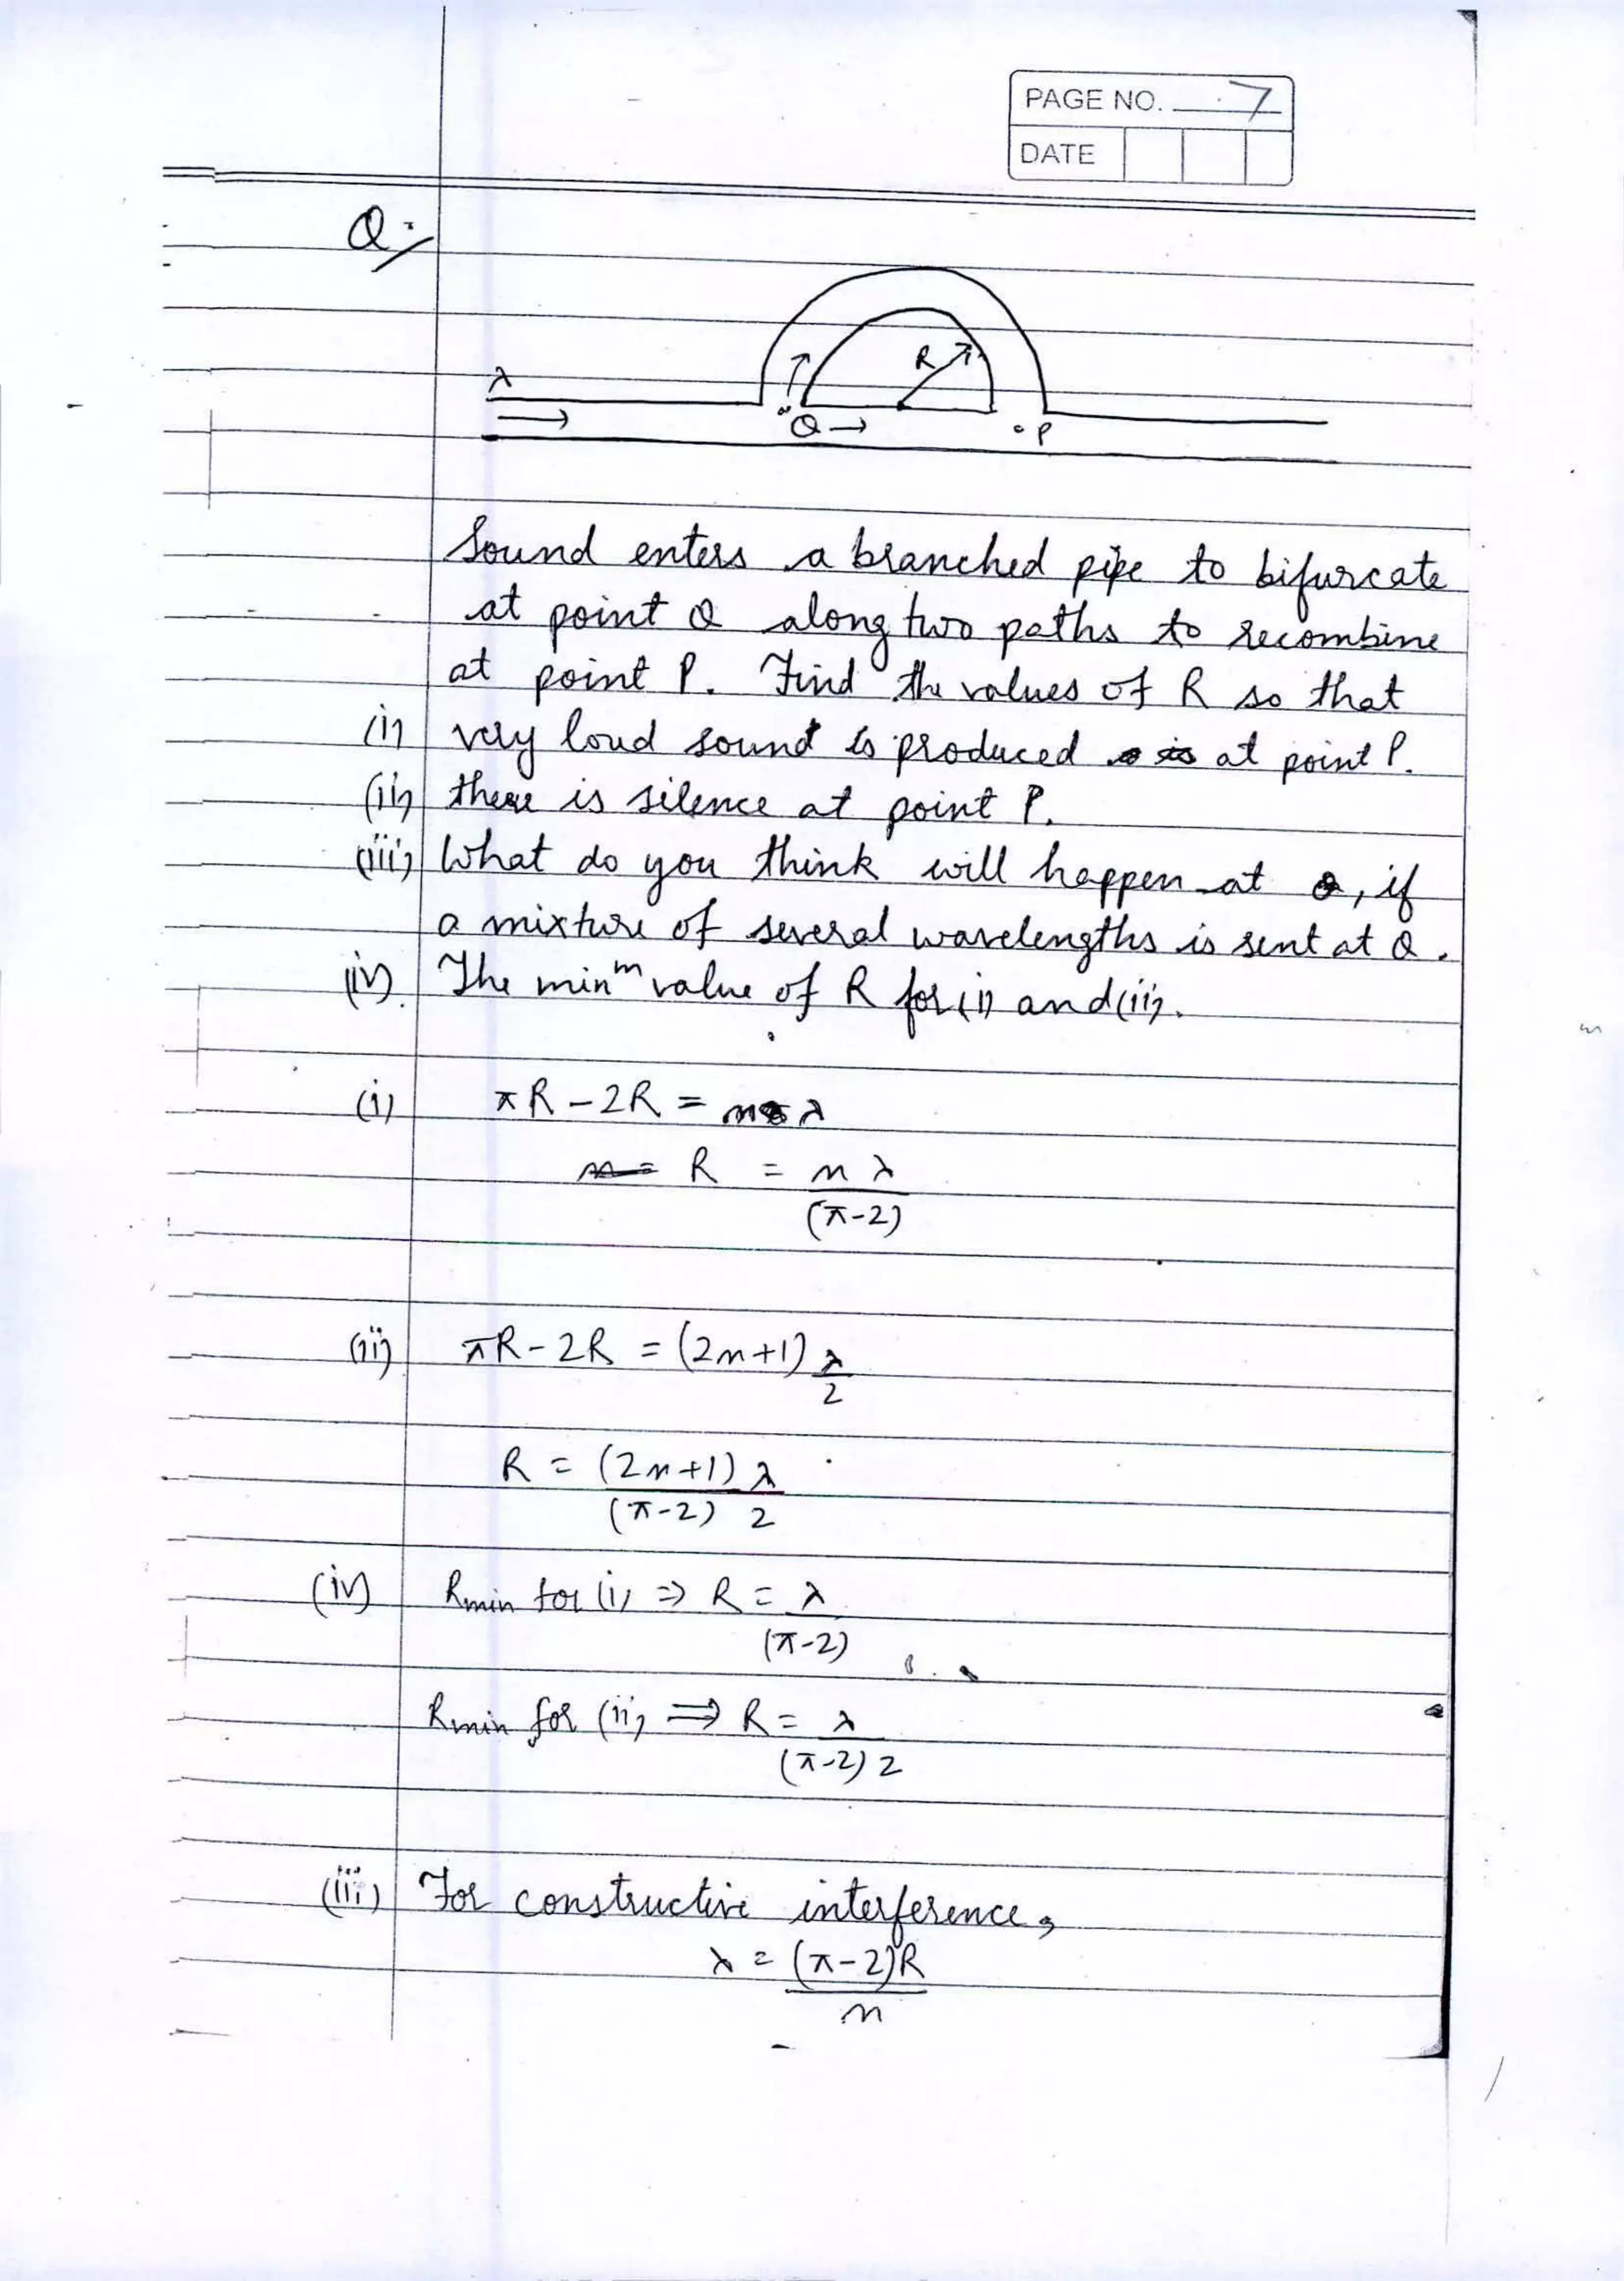 PAGE NO. 7
DATE
Q:-
λ
R
Q →
P
Sound enters a branched pipe to bifurcate
at point Q along two paths to recombine
at point P. Find the values of R so that
(i) very loud sound is produced at point P.
(ii) there is silence at point P.
(iii) What do you think will happen at Q, if
a mixture of several wavelengths is sent at Q.
(iv) The minᵐ value of R for (i) and (ii).
(i) πR - 2R = nλ
R = nλ
(π-2)
(ii) πR - 2R = (2n+1) λ
2
R = (2n+1) λ
(π-2) 2
(iv) Rmin for (i) ⇒ R = λ
(π-2)
Rmin for (ii) ⇒ R = λ
(π-2) 2
(iii) For constructive interference,
λ = (π-2)R
n